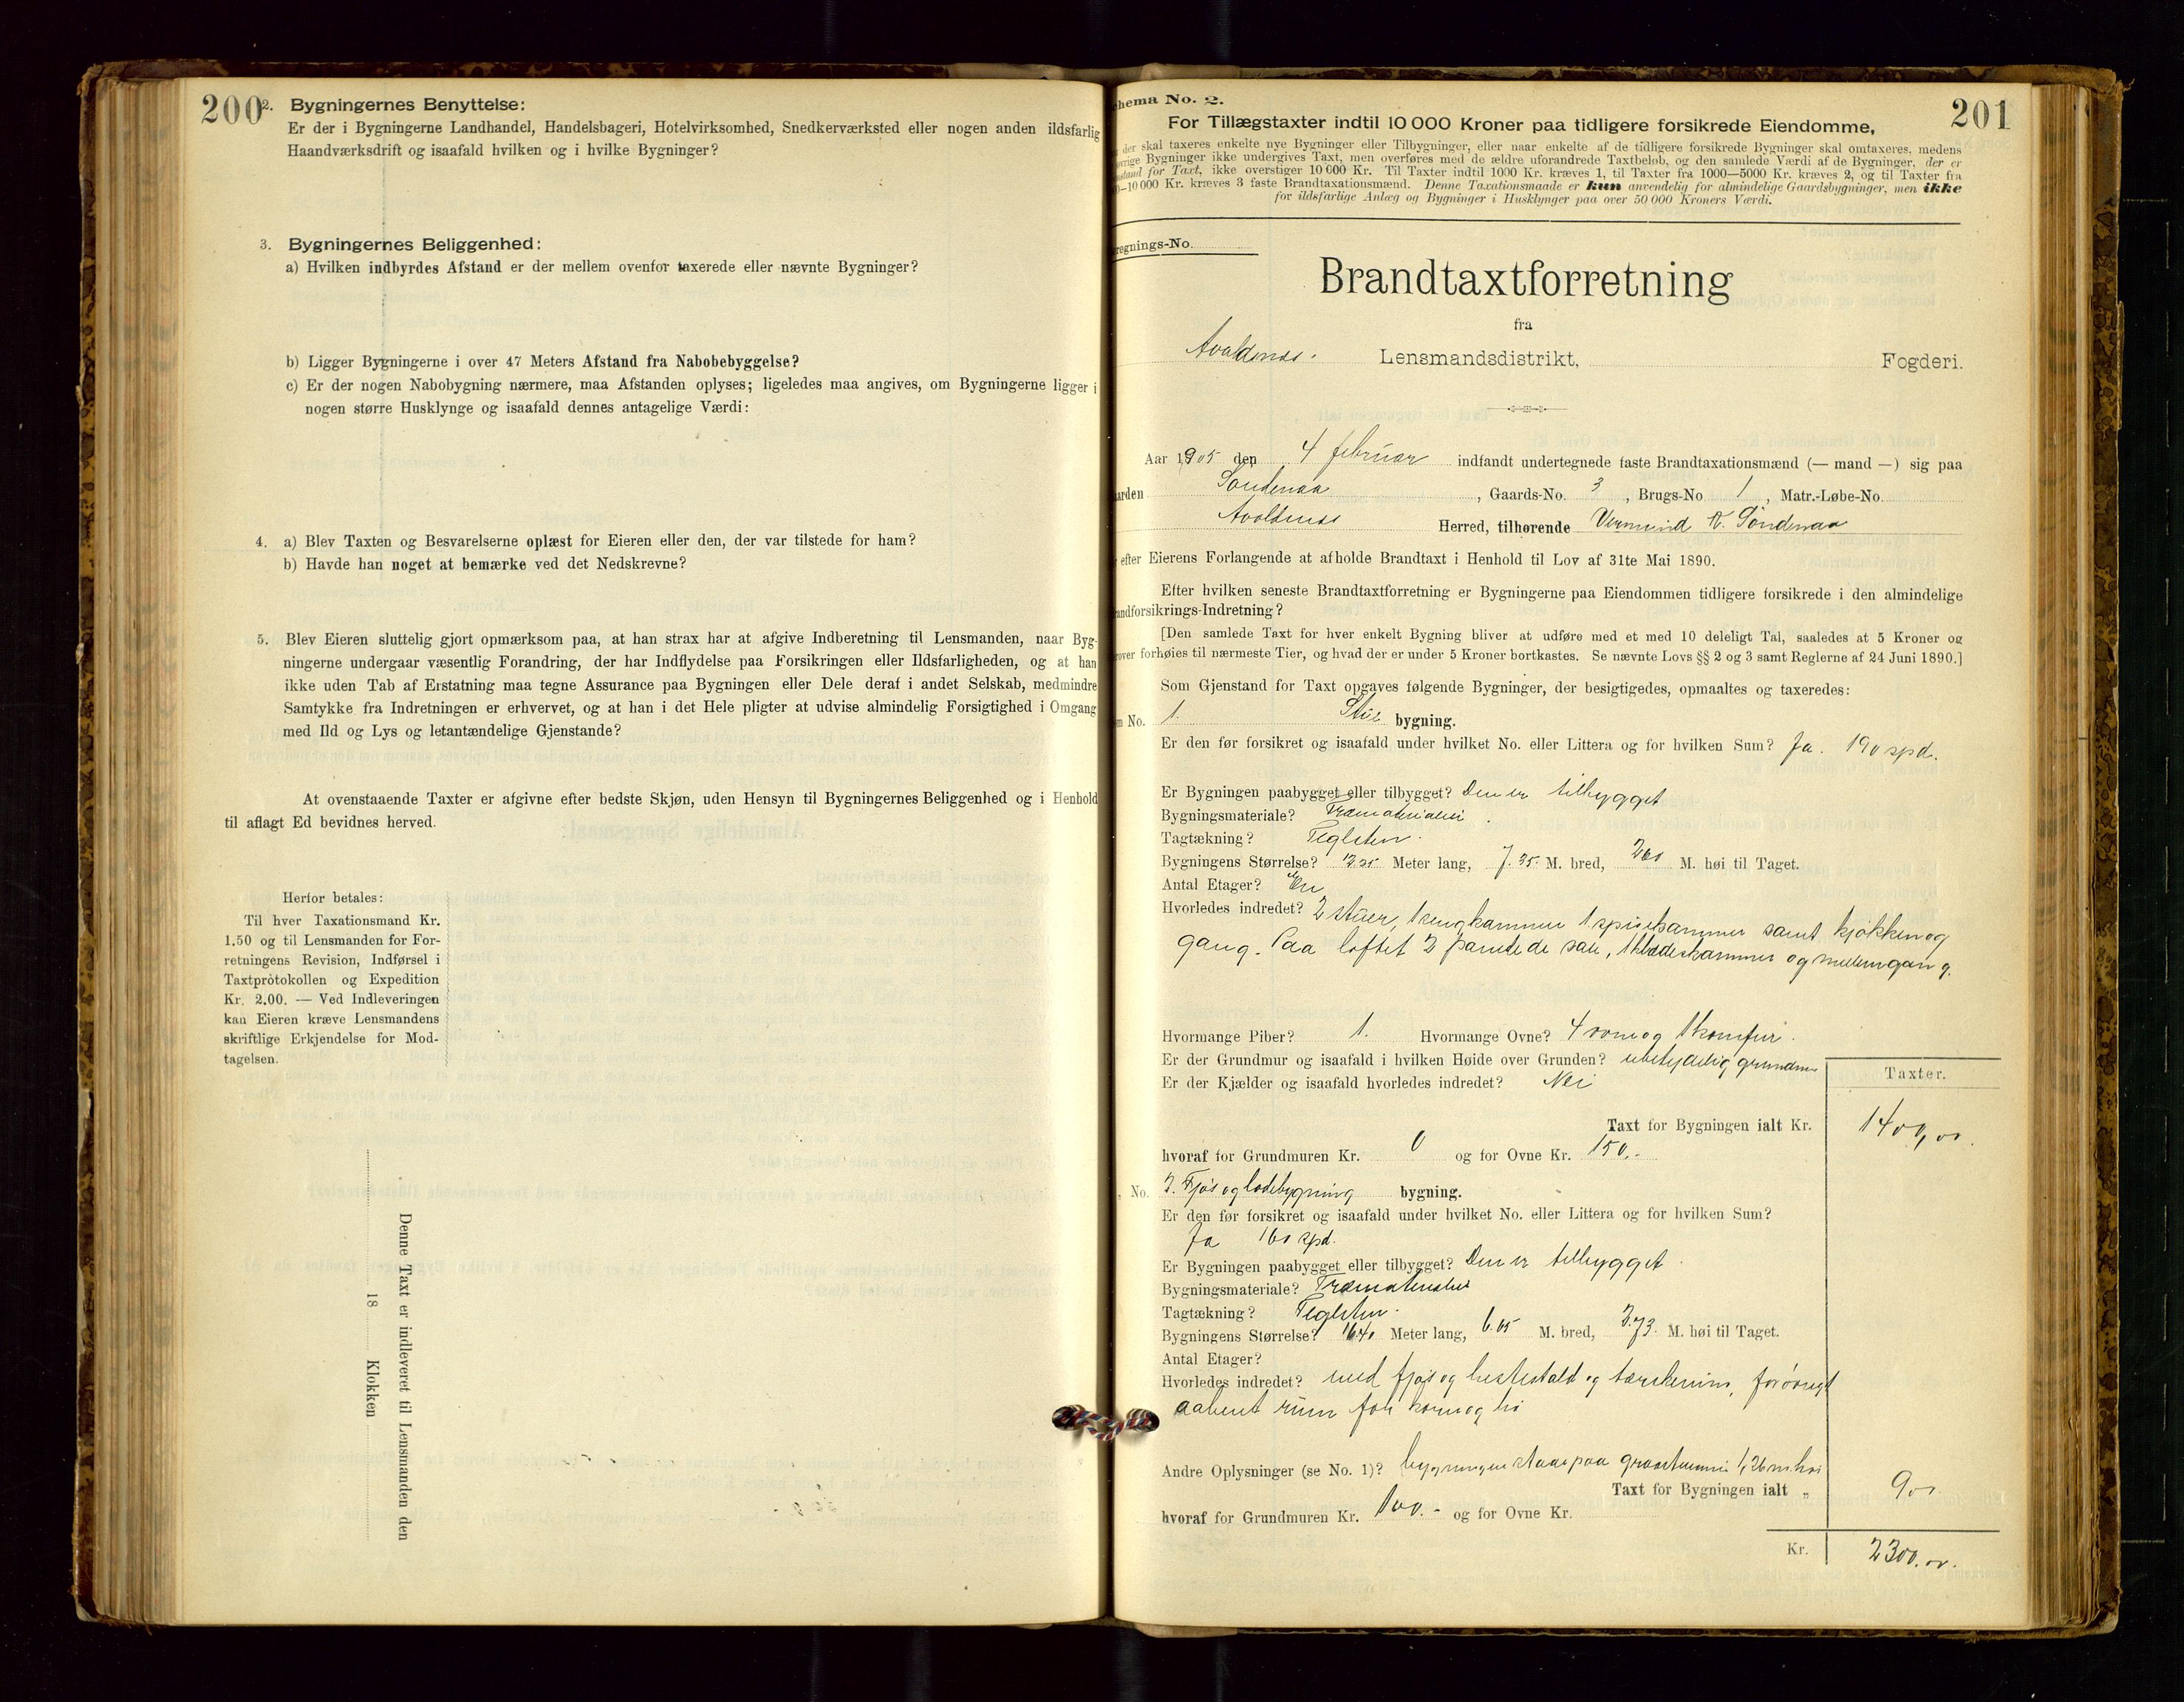 200
2. Bygningernes Benyttelse:
Er der i Bygningerne Landhandel, Handelsbageri, Hotelvirksomhed, Snedkerværksted eller nogen anden ildsfarlig
Haandværksdrift og isaafald hvilken og i hvilke Bygninger?
3. Bygningernes Beliggenhed:
a) Hvilken indbyrdes Afstand er der mellem ovenfor taxerede eller nævnte Bygninger?
b) Ligger Bygningerne i over 47 Meters Afstand fra Nabobebyggelse?
c) Er der nogen Nabobygning nærmere, maa Afstanden oplyses; ligeledes maa angives, om Bygningerne ligger i
nogen større Husklynge og isaafald dennes antagelige Værdi:
4. a) Blev Taxten og Besvarelserne oplæst for Eieren eller den, der var tilstede for ham?
b) Havde han noget at bemærke ved det Nedskrevne?
5. Blev Eieren sluttelig gjort opmærksom paa, at han strax har at afgive Indberetning til Lensmanden, naar Byg-
ningerne undergaar væsentlig Forandring, der har Indflydelse paa Forsikringen eller Ildsfarligheden, og at han
ikke uden Tab af Erstatning maa tegne Assurance paa Bygningen eller Dele deraf i andet Selskab, medmindre
Samtykke fra Indretningen er erhvervet, og at han i det Hele pligter at udvise almindelig Forsigtighed i Omgang
med Ild og Lys og letantændelige Gjenstande?
At ovenstaaende Taxter er afgivne efter bedste Skjøn, uden Hensyn til Bygningernes Beliggenhed og i Henhold
til aflagt Ed bevidnes herved.
Herfor betales:
Til hver Taxationsmand Kr.
1.50 og til Lensmanden for For-
retningens Revision, Indførsel i
Taxtprotokollen og Expedition
Kr. 2.00. — Ved Indleveringen
kan Eieren kræve Lensmandens
skriftlige Erkjendelse for Mod-
tagelsen.
Denne Taxt er indleveret til Lensmanden den
18 Klokken
201
hema No. 2.
For Tillægstaxter indtil 10 000 Kroner paa tidligere forsikrede Eiendomme,
der skal taxeres enkelte nye Bygninger eller Tilbygninger, eller naar enkelte af de tidligere forsikrede Bygninger skal omtaxeres, medens
vrige Bygninger ikke undergives Taxt, men overføres med de ældre uforandrede Taxtbeløb, og den samlede Værdi af de Bygninger, der er
stand for Taxt, ikke overstiger 10 000 Kr. Til Taxter indtil 1000 Kr. kræves 1, til Taxter fra 1000—5000 Kr. kræves 2, og til Taxter fra
0—10 000 Kr. kræves 3 faste Brandtaxationsmænd. Denne Taxationsmaade er kun anvendelig for almindelige Gaardsbygninger, men ikke
for ildsfarlige Anlæg og Bygninger i Husklynger paa over 50 000 Kroners Værdi.
regnings-No.
Brandtaxtforretning
fra
Avaldsnes. Lensmandsdistrikt, Fogderi.
Aar 1905 den 4 februar indfandt undertegnede faste Brandtaxationsmænd (— mand —) sig paa
arden Søndenaa, Gaards-No. 3, Brugs-No 1, Matr.-Løbe-No.
Avaldsnes Herred, tilhørende Vermund N. Søndenaa
efter Eierens Forlangende at afholde Brandtaxt i Henhold til Lov af 31te Mai 1890.
Efter hvilken seneste Brandtaxtforretning er Bygningerne paa Eiendommen tidligere forsikrede i den almindelige
andforsikrings-Indretning?
[Den samlede Taxt for hver enkelt Bygning bliver at udføre med et med 10 deleligt Tal, saaledes at 5 Kroner og
over forhøies til nærmeste Tier, og hvad der er under 5 Kroner bortkastes. Se nævnte Lovs §§ 2 og 3 samt Reglerne af 24 Juni 1890.]
Som Gjenstand for Taxt opgaves følgende Bygninger, der besigtigedes, opmaaltes og taxeredes:
m No. 1. Stue bygning.
Er den før forsikret og isaafald under hvilket No. eller Littera og for hvilken Sum? Ja. 190 spd.
Er Bygningen paabygget eller tilbygget? Den er tilbygget
Bygningsmateriale? Træmaterialei
Tagtækning? Teglsten.
Bygningens Størrelse? Meter lang, 7.35 M. bred, 260 M. høi til Taget.
Antal Etager? En
Hvorledes indredet? 2 stuer, 1 sengkammer 1 spisekammer samt kjøkken og
gang. Paa loftet 2 panelede sale, 1 klædeskammer og mellemgang.
Hvormange Piber? 1. Hvormange Ovne? 4 ovne og 1 komfur.
Er der Grundmur og isaafald i hvilken Høide over Grunden? ubetydelig grundmur
Er der Kjælder og isaafald hvorledes indredet? Nei
Taxter.
Taxt for Bygningen ialt Kr. 1400,00.
hvoraf for Grundmuren Kr. 0 og for Ovne Kr. 150.-
No. 3. Fjøs og ladebygning bygning.
Er den før forsikret og isaafald under hvilket No. eller Littera og for hvilken Sum?
Ja 160 spd.
Er Bygningen paabygget eller tilbygget? Den er tilbygget.
Bygningsmateriale? Træmaterialei
Tagtækning? Teglsten.
Bygningens Størrelse? 16.40 Meter lang, 6.65 M. bred, 3.73. M. høi til Taget.
Antal Etager?
Hvorledes indredet? med fjøs og hestestald og tærskerum, forøvrigt
aabent rum for korn og hø
Andre Oplysninger (se No. 1)? bygningen staar paa graastensmur 1,26 m høi
Taxt for Bygningen ialt „ 900
hvoraf for Grundmuren Kr. 100.- og for Ovne Kr.
Kr. 2300.00.